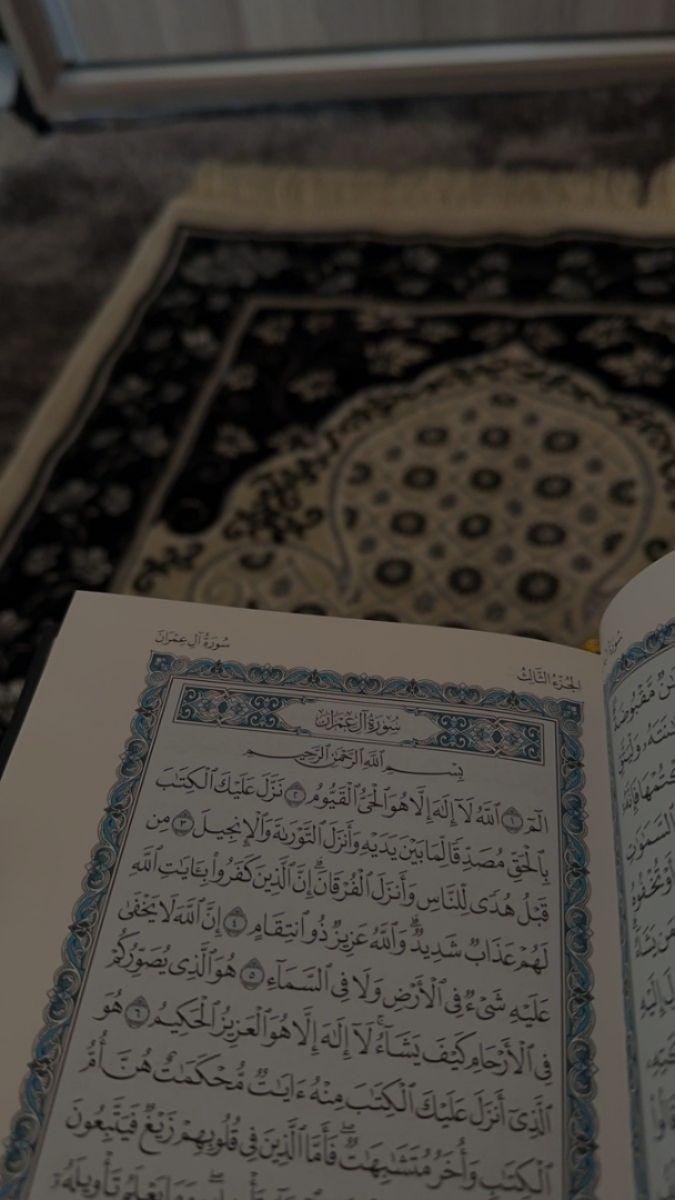 سُورَةُ آلِ عِمْرَانَ
الجُزْءُ الثَّالِثُ
سُورَةُ آلِ عِمْرَانَ
بِسْمِ ٱللَّهِ ٱلرَّحْمَٰنِ ٱلرَّحِيمِ
الٓمٓ ١ ٱللَّهُ لَآ إِلَٰهَ إِلَّا هُوَ ٱلْحَىُّ ٱلْقَيُّومُ ٢ نَزَّلَ عَلَيْكَ ٱلْكِتَٰبَ
بِٱلْحَقِّ مُصَدِّقًا لِّمَا بَيْنَ يَدَيْهِ وَأَنزَلَ ٱلتَّوْرَىٰةَ وَٱلْإِنجِيلَ ٣ مِن
قَبْلُ هُدًى لِّلنَّاسِ وَأَنزَلَ ٱلْفُرْقَانَ ۗ إِنَّ ٱلَّذِينَ كَفَرُوا۟ بِـَٔايَٰتِ ٱللَّهِ
لَهُمْ عَذَابٌ شَدِيدٌ ۗ وَٱللَّهُ عَزِيزٌ ذُو ٱنتِقَامٍ ٤ إِنَّ ٱللَّهَ لَا يَخْفَىٰ
عَلَيْهِ شَىْءٌ فِى ٱلْأَرْضِ وَلَا فِى ٱلسَّمَآءِ ٥ هُوَ ٱلَّذِى يُصَوِّرُكُمْ
فِى ٱلْأَرْحَامِ كَيْفَ يَشَآءُ ۚ لَآ إِلَٰهَ إِلَّا هُوَ ٱلْعَزِيزُ ٱلْحَكِيمُ ٦ هُوَ
ٱلَّذِىٓ أَنزَلَ عَلَيْكَ ٱلْكِتَٰبَ مِنْهُ ءَايَٰتٌ مُّحْكَمَٰتٌ هُنَّ أُمُّ
ٱلْكِتَٰبِ وَأُخَرُ مُتَشَٰبِهَٰتٌ ۖ فَأَمَّا ٱلَّذِينَ فِى قُلُوبِهِمْ زَيْغٌ فَيَتَّبِعُونَ